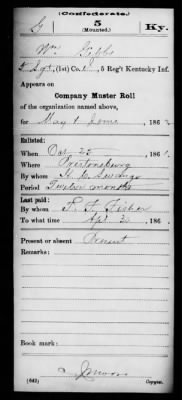 (Confederate.)
G 5 Ky.
(Mounted.)
Wm Gibbs
5 Sgt, (1st) Co. , 5 Reg't Kentucky Inf.
Appears on
Company Muster Roll
of the organization named above,
for May & June, 186
Enlisted:
When Oct 25, 186
Where Prestonsburg
By whom H. C. Swango
Period Twelve months
Last paid:
By whom F. Fisher
To what time Apr , 186
Present or absent Present
Remarks:
Book mark:
(642) Copyist.